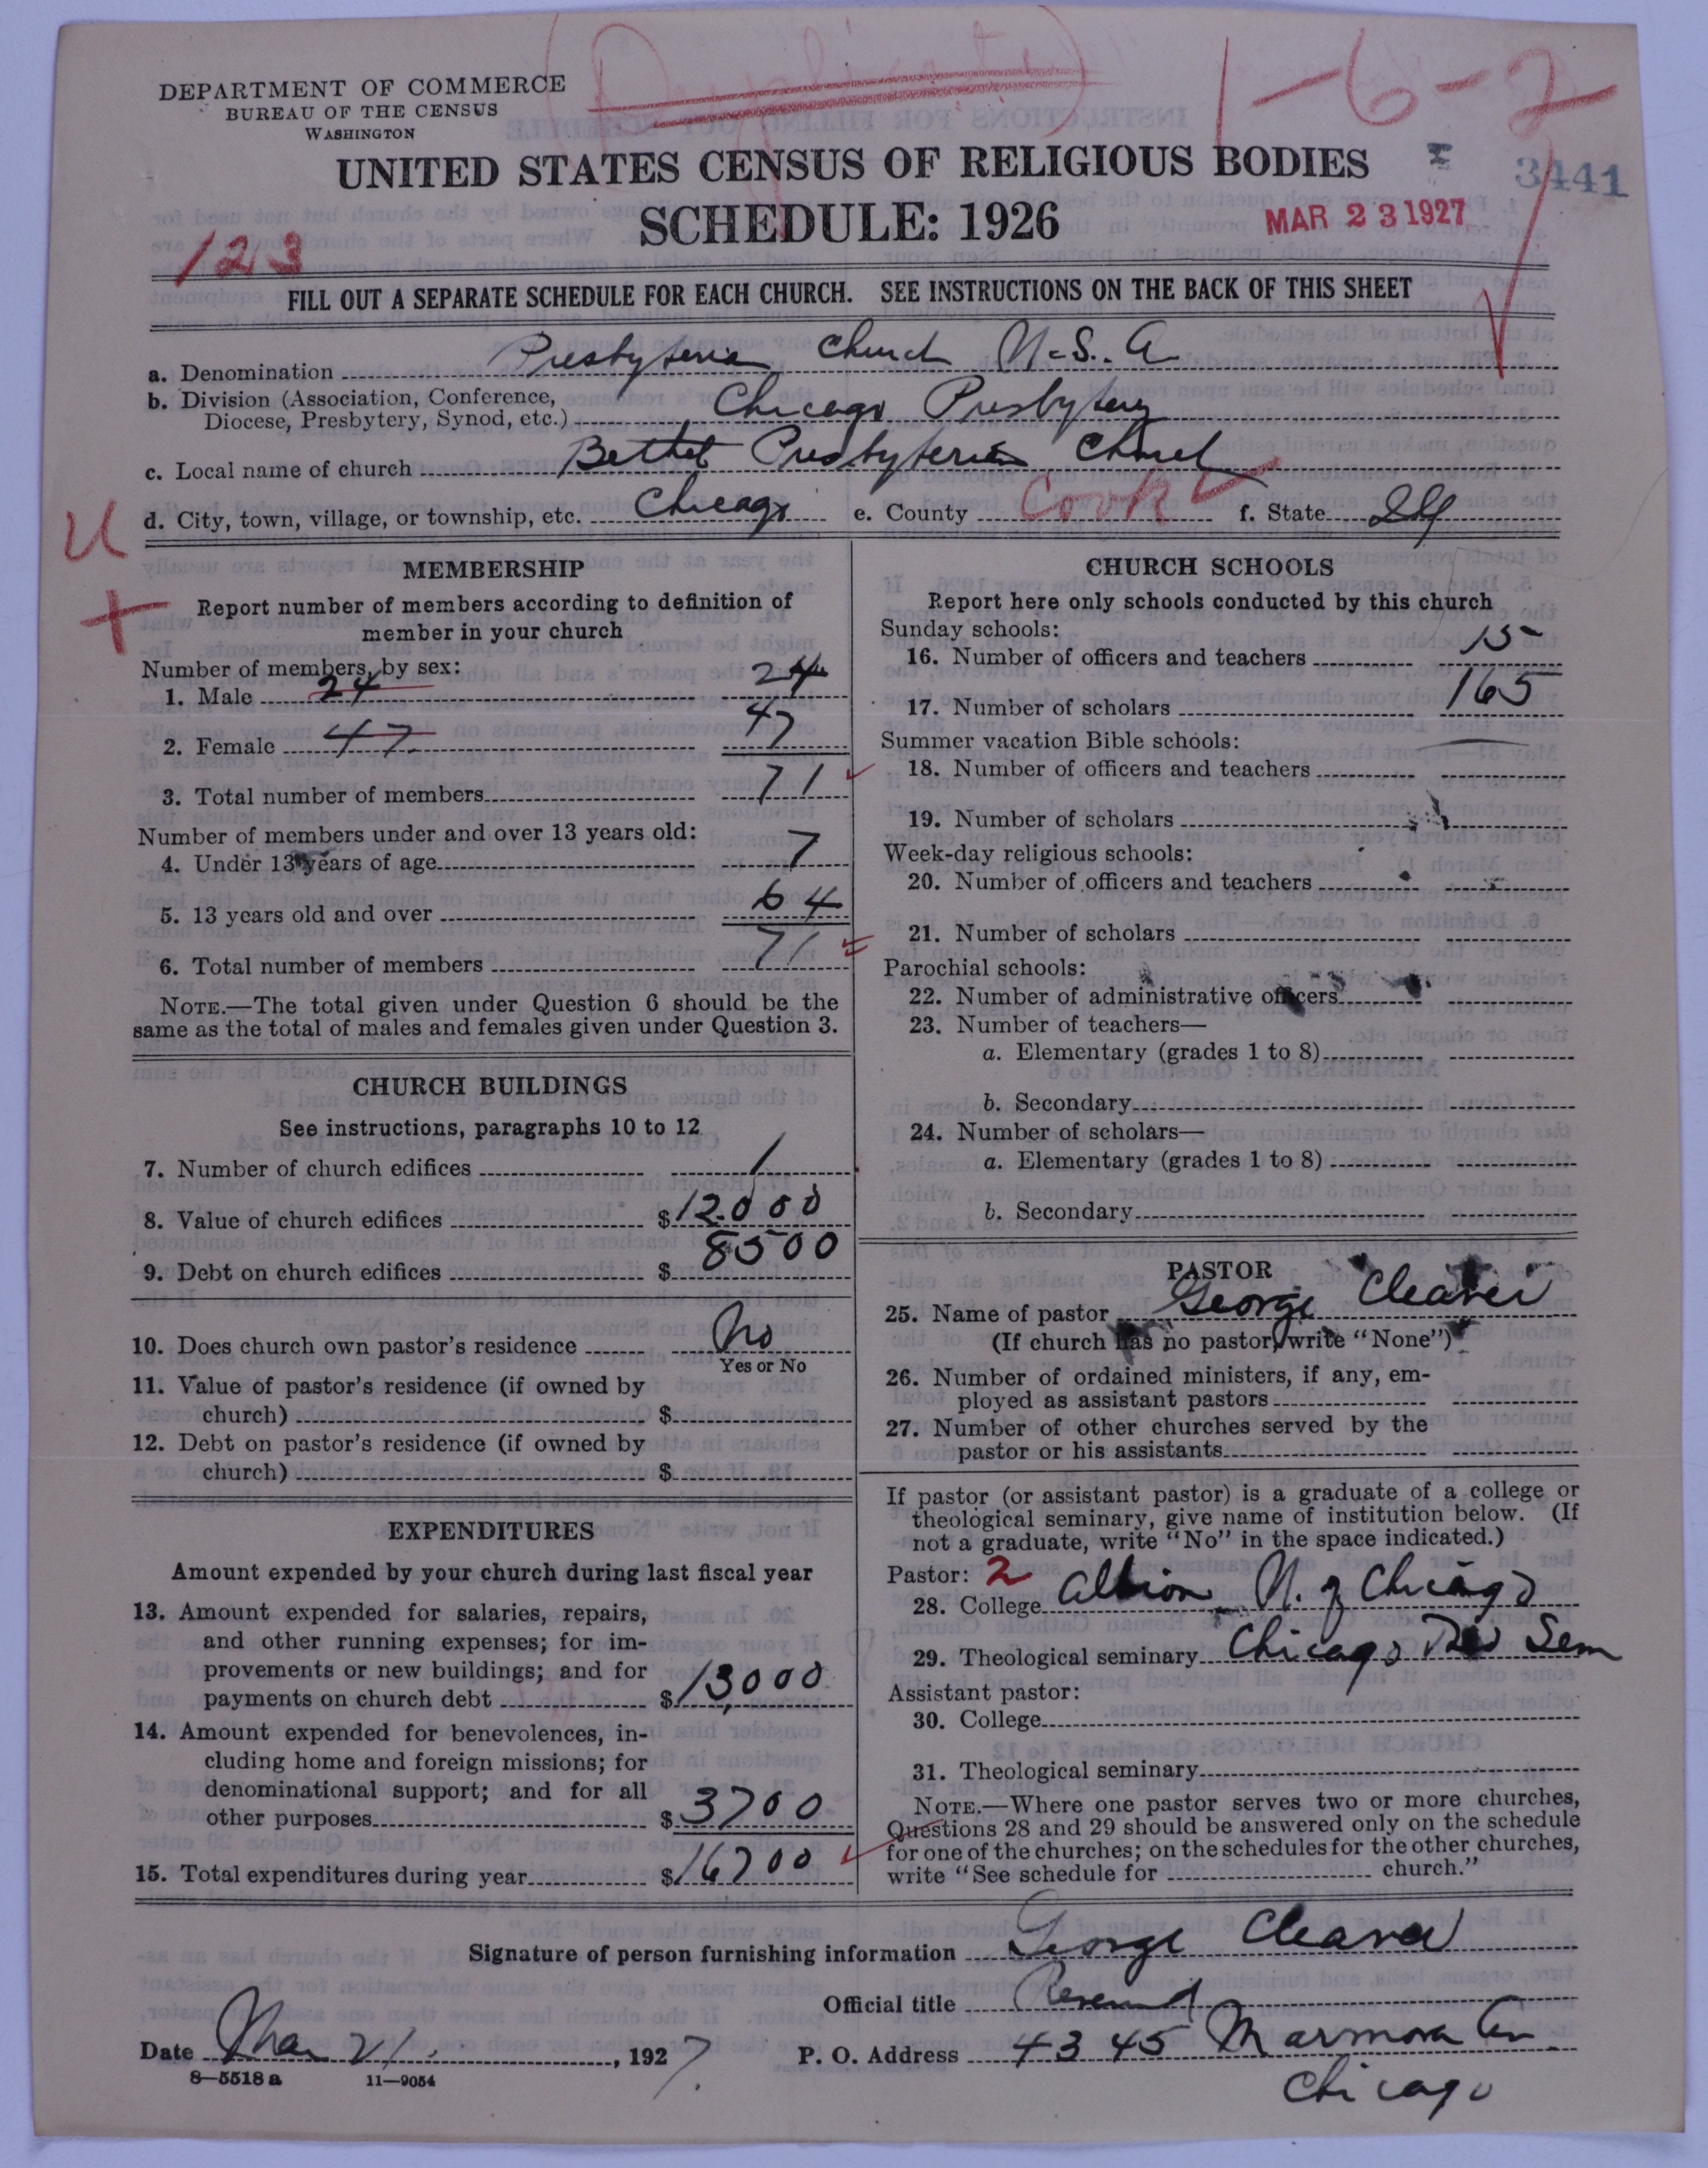 (Duplicate)
1-6-2
DEPARTMENT OF COMMERCE
BUREAU OF THE CENSUS
WASHINGTON
UNITED STATES CENSUS OF RELIGIOUS BODIES
3441
SCHEDULE: 1926
MAR 23 1927
123
FILL OUT A SEPARATE SCHEDULE FOR EACH CHURCH. SEE INSTRUCTIONS ON THE BACK OF THIS SHEET
a. Denomination Presbyterian Church U.S.A
b. Division (Association, Conference,
Diocese, Presbytery, Synod, etc.) Chicago Presbytery
c. Local name of church Bethel Presbyterian Church
d. City, town, village, or township, etc. Chicago e. County Cook f. State Ill
U
+
MEMBERSHIP
Report number of members according to definition of
member in your church
Number of members, by sex:
1. Male 24 24
2. Female 47 47
3. Total number of members 71
Number of members under and over 13 years old:
4. Under 13 years of age 7
5. 13 years old and over 64
6. Total number of members 71
NOTE.—The total given under Question 6 should be the
same as the total of males and females given under Question 3.
CHURCH BUILDINGS
See instructions, paragraphs 10 to 12
7. Number of church edifices 1
8. Value of church edifices $12000
9. Debt on church edifices $8500
10. Does church own pastor's residence No
Yes or No
11. Value of pastor's residence (if owned by
church) $
12. Debt on pastor's residence (if owned by
church) $
EXPENDITURES
Amount expended by your church during last fiscal year
13. Amount expended for salaries, repairs,
and other running expenses; for im-
provements or new buildings; and for
payments on church debt $13,000
14. Amount expended for benevolences, in-
cluding home and foreign missions; for
denominational support; and for all
other purposes $3700
15. Total expenditures during year $16700
CHURCH SCHOOLS
Report here only schools conducted by this church
Sunday schools:
16. Number of officers and teachers 15
17. Number of scholars 165
Summer vacation Bible schools:
18. Number of officers and teachers
19. Number of scholars
Week-day religious schools:
20. Number of officers and teachers
21. Number of scholars
Parochial schools:
22. Number of administrative officers
23. Number of teachers—
a. Elementary (grades 1 to 8)
b. Secondary
24. Number of scholars—
a. Elementary (grades 1 to 8)
b. Secondary
PASTOR
25. Name of pastor George Cleaver
(If church has no pastor, write "None")
26. Number of ordained ministers, if any, em-
ployed as assistant pastors
27. Number of other churches served by the
pastor or his assistants
If pastor (or assistant pastor) is a graduate of a college or
theological seminary, give name of institution below. (If
not a graduate, write "No" in the space indicated.)
Pastor: 2
28. College Albion U. of Chicago
29. Theological seminary Chicago Theo Sem
Assistant pastor:
30. College
31. Theological seminary
NOTE.—Where one pastor serves two or more churches,
Questions 28 and 29 should be answered only on the schedule
for one of the churches; on the schedules for the other churches,
write "See schedule for church."
Signature of person furnishing information George Cleaver
Official title Reverend
Date Mar 21, 1927. P. O. Address 4345 Marmora Av
8—5518a 11—9054
Chicago